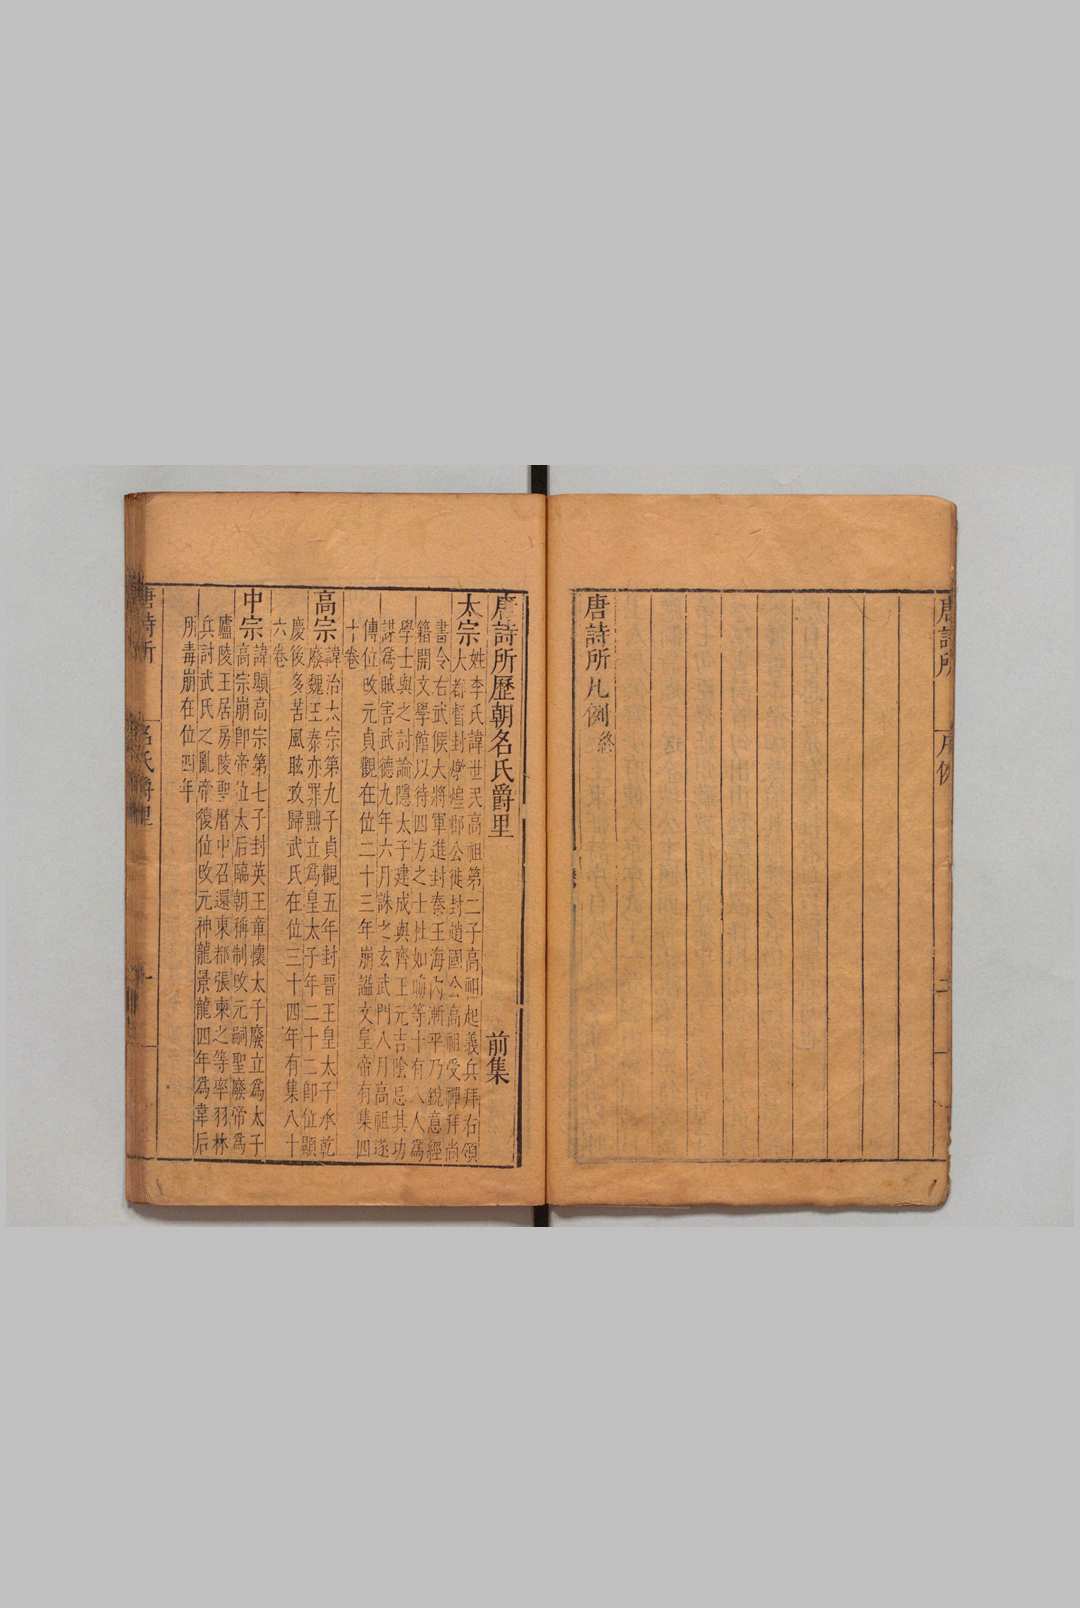 唐詩所 序例
二
唐詩所凡例終
唐詩所歷朝名氏爵里 前集
太宗
姓李氏諱世民高祖第二子高祖起義兵拜右領
大都督封燉煌郡公徙封趙國公高祖受禪拜尚
書令右武候大將軍進封秦王海內漸平乃銳意經
籍開文學館以待四方之士杜如晦等十有八人爲
學士與之討論隱太子建成與齊王元吉陰忌其功
謀爲賊害武德九年六月誅之玄武門八月高祖遂
傳位改元貞觀在位二十三年崩謚文皇帝有集四
十卷
高宗
諱治太宗第九子貞觀五年封晉王皇太子承乾
廢魏王泰亦罪黜立爲皇太子年二十二卽位顯
慶後多苦風眩政歸武氏在位三十四年有集八十
六卷
中宗
諱顯高宗第七子封英王章懷太子廢立爲太子
高宗崩卽帝位太后臨朝稱制改元嗣聖廢帝爲
廬陵王居房陵聖曆中召還東都張柬之等率羽林
兵討武氏之亂帝復位改元神龍景龍四年爲韋后
所毒崩在位四年
唐詩所 名氏爵里